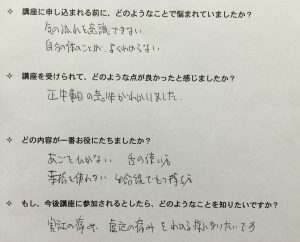 ✧ 講座に申し込まれる前に、どのようなことで悩まれていましたか?
気の流れを意識できない
自分の体のことが、よくわからない
✧ 講座を受けられて、どのような点が良かったと感じましたか?
正中軸の意味がわかりました。
✧ どの内容が一番お役にたちましたか?
あごをひかない 舌の使い方
薬指を使わない 生命線でもつ持ち方
✧ もし、今後講座に参加されるとしたら、どのようなことを知りたいですか?
実証の痛み、虚証の痛み をとれる様になりたいです